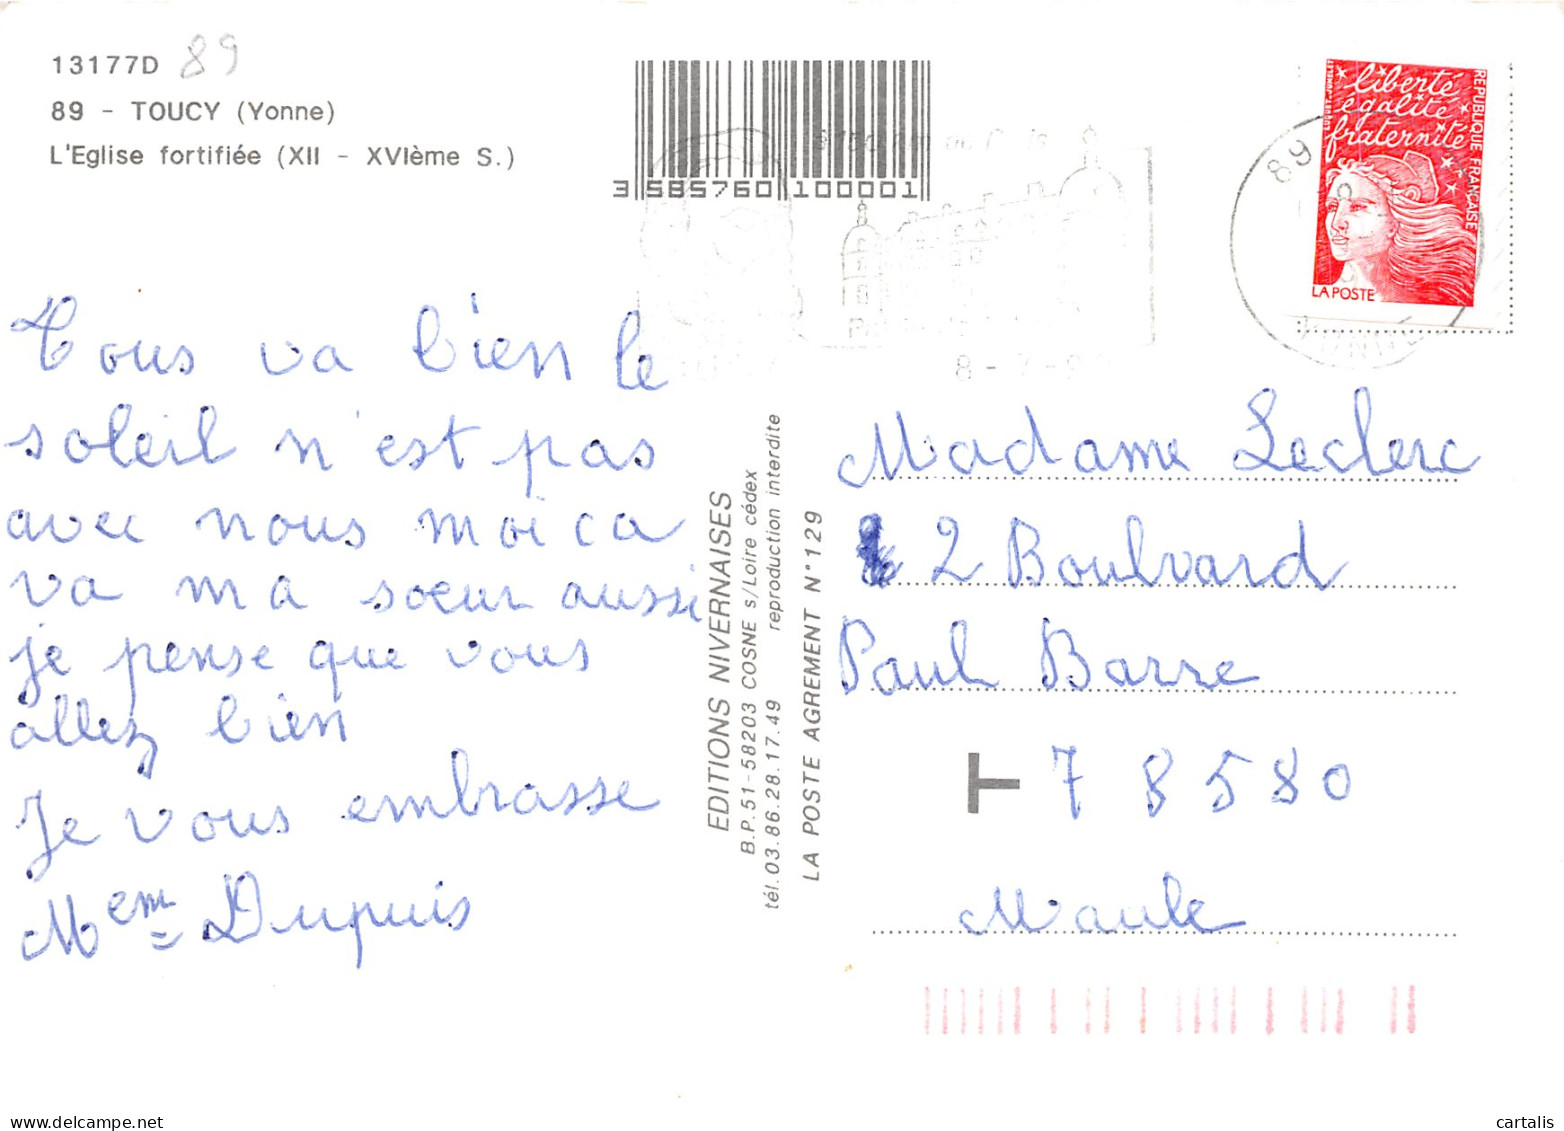 13177D 89
89 - TOUCY (Yonne)
L'Eglise fortifiée (XII - XVIème S.)
3 585760 100001
liberté
égalité
fraternité
REPUBLIQUE FRANÇAISE
LA POSTE
89
8 -
Tous va bien le
soleil n'est pas
avec nous moi ca
va ma soeur aussi
je pense que vous
allez bien
Je vous embrasse
Mem Dupuis
EDITIONS NIVERNAISES
B.P. 51-58203 COSNE s/Loire cédex
tél. 03.86.28.17.49 reproduction interdite
LA POSTE AGREMENT N°129
Madame Leclerc
2 Boulvard
Paul Barre
T 78580
Maule
cartalis